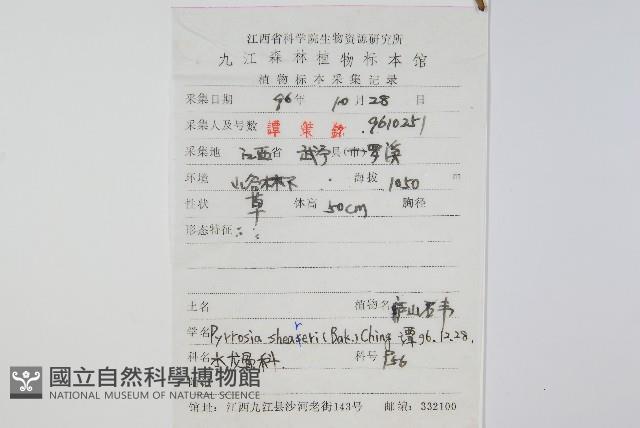 江西省科学院生物资源研究所
九江森林植物标本馆
植物标本采集记录
采集日期 96年 10月28日
采集人及号数 譚策銘 9610251
采集地 江西省 武宁县(市) 罗溪
环境 山谷林下 海拔 1050 m
性状 草 体高 50cm 胸径
形态特征:
土名 植物名 庐山石韦
学名 Pyrrosia sheareri (Bak.) Ching 谭 96.12.28.
科名 水龙骨科 科号 F56
國立自然科學博物館
NATIONAL MUSEUM OF NATURAL SCIENCE
馆址:江西九江县沙河老街143号 邮编:332100